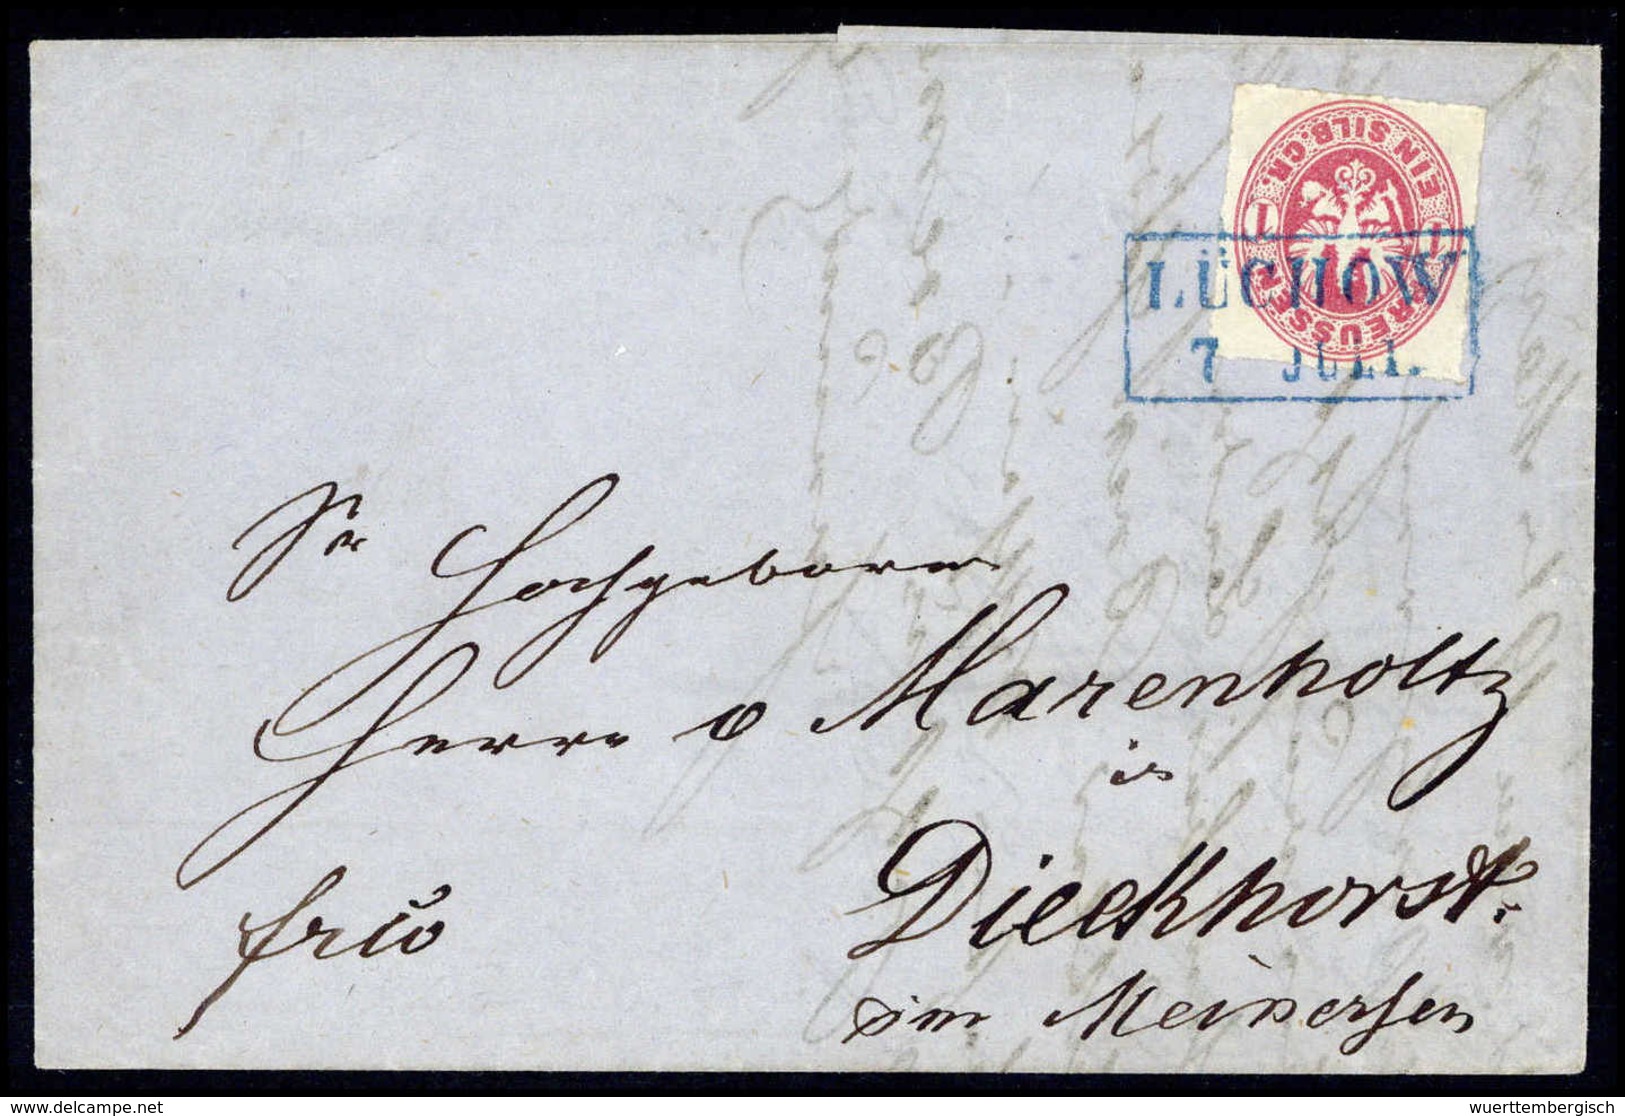 EIN SILB. GR.
1 1
PREUSSEN
LÜCHOW
7 JULI.
Sr Hochgeboren
Herrn v Marenholtz
in
Dieckhorst.
frco
im Meinersen
delcampe.net
wuerttembergisch